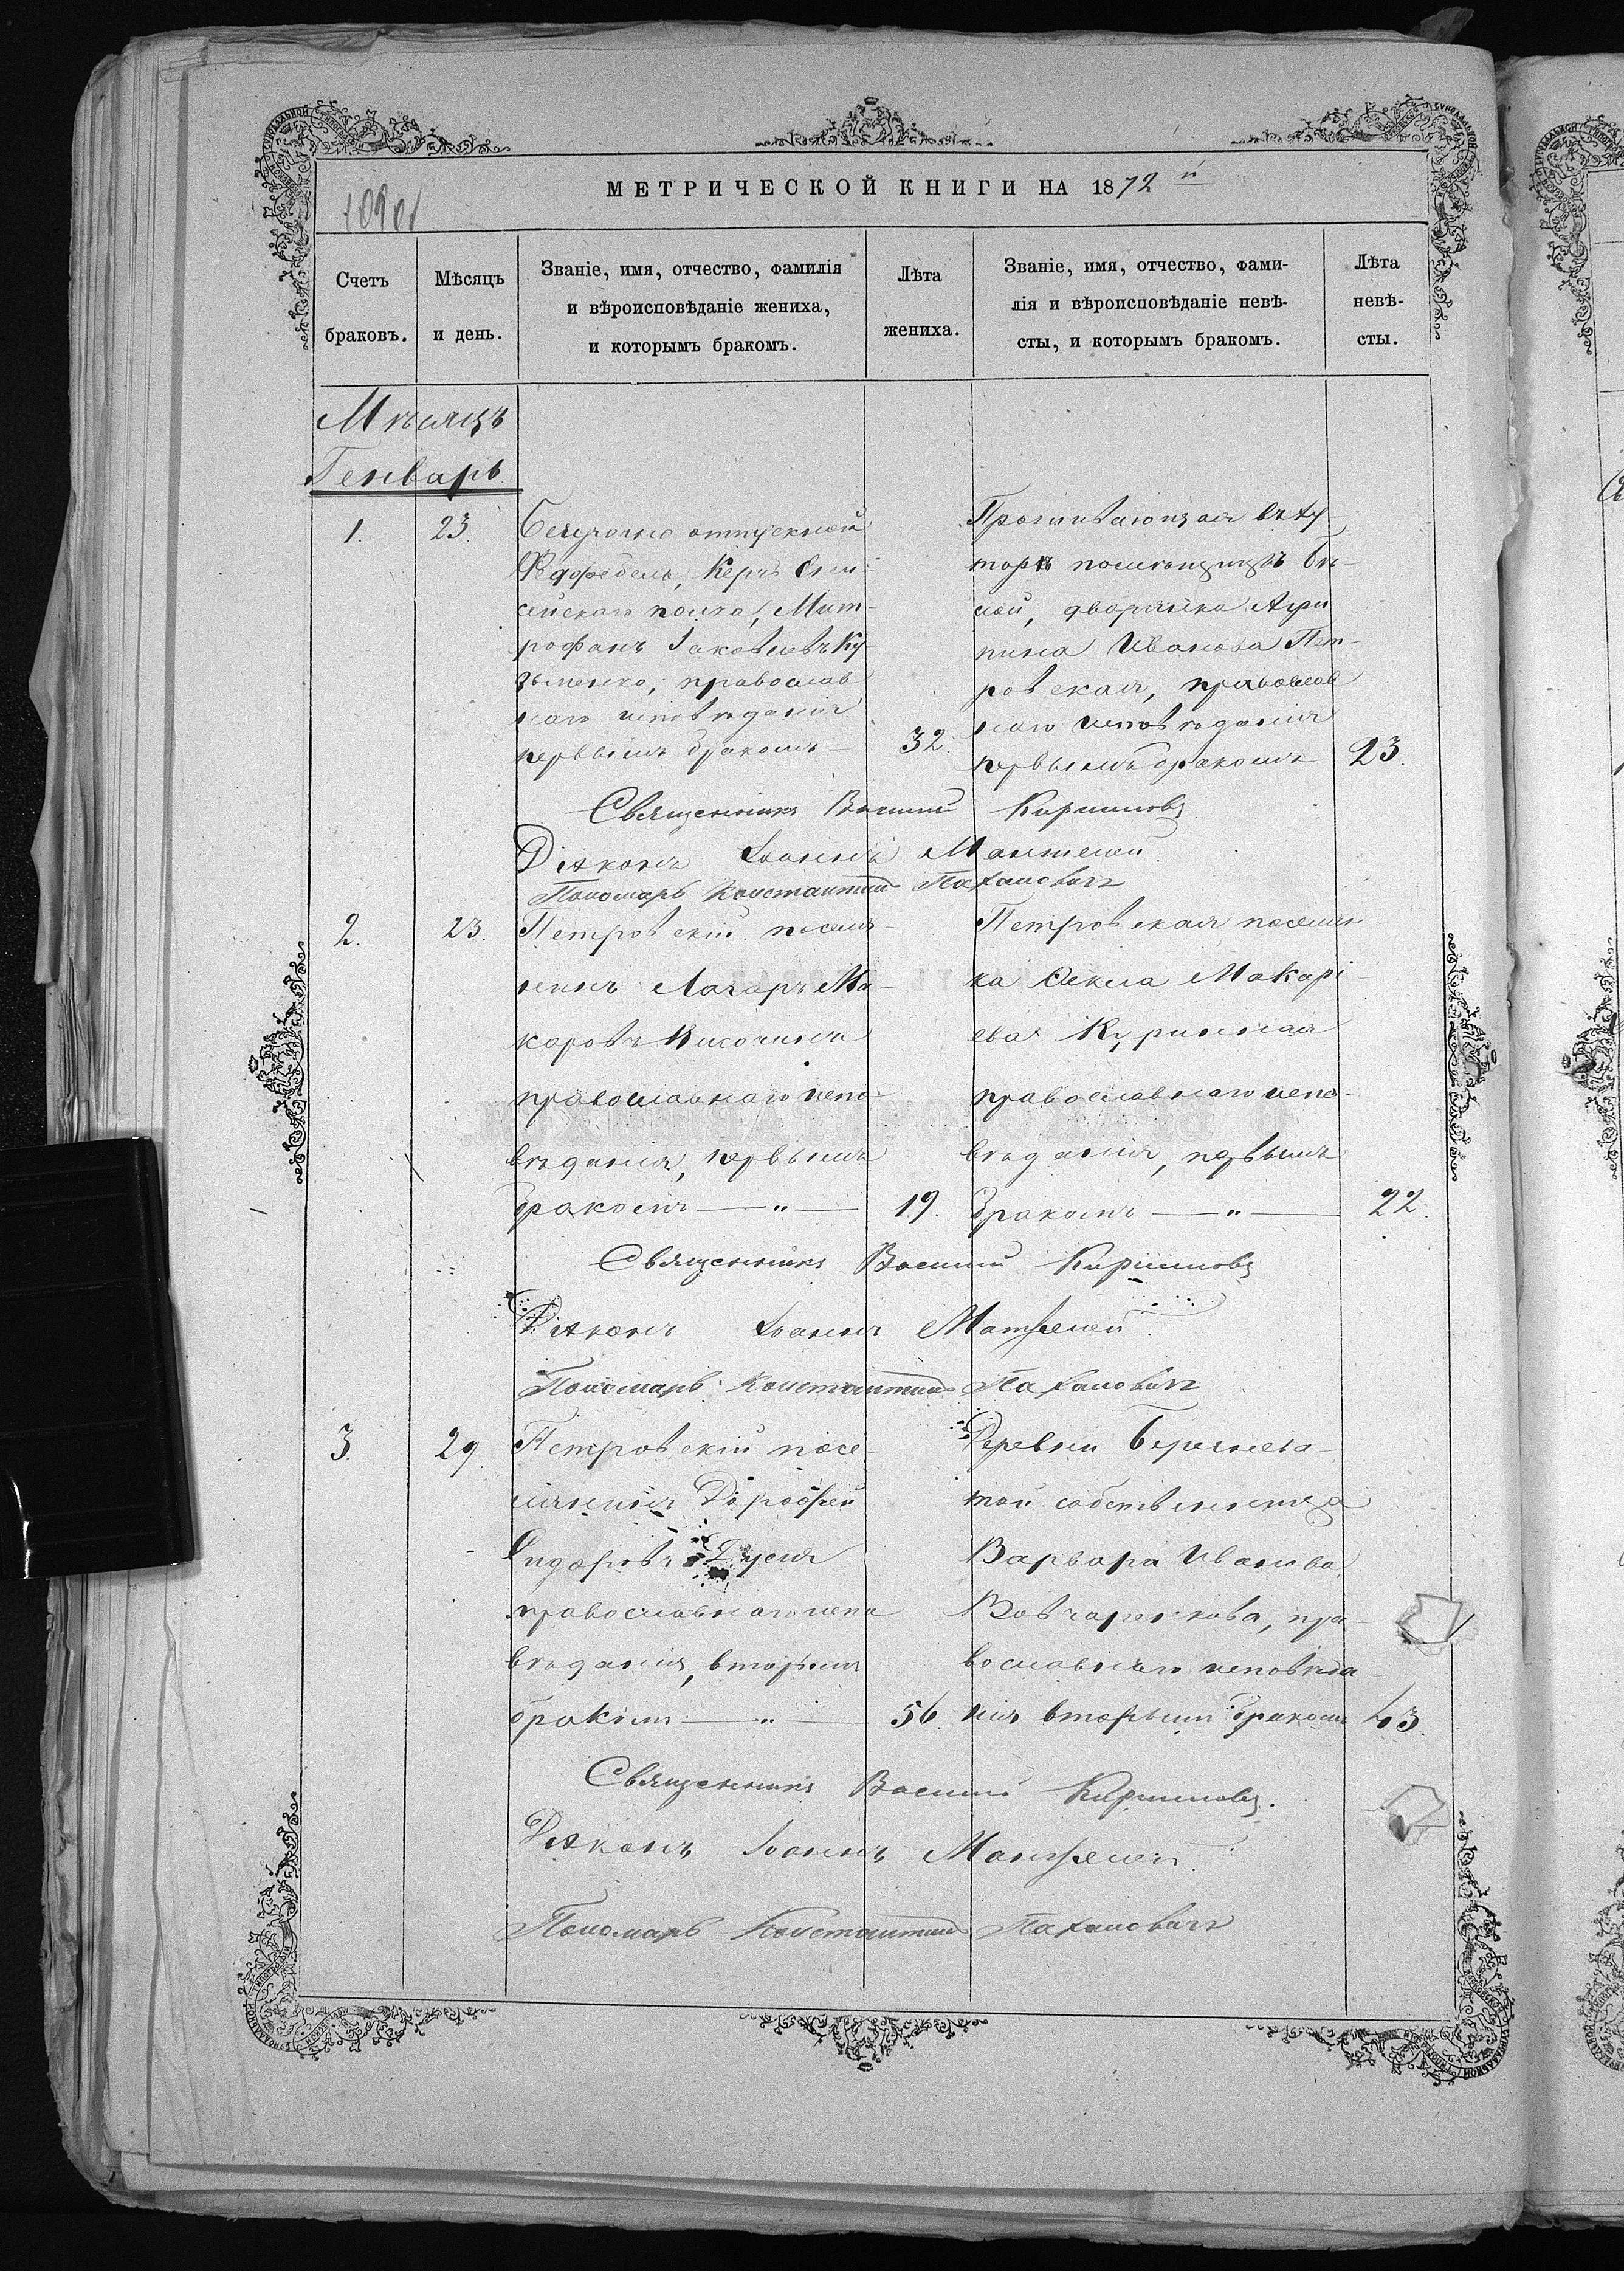 МЕТРИЧЕСКОЙ КНИГИ НА 1872 й
Счетъ браковъ.
Мѣсяцъ и день.
Званіе, имя, отчество, фамилія
и вѣроисповѣданіе жениха,
и которымъ бракомъ.
Лѣта жениха.
Званіе, имя, отчество, фами-
лія и вѣроисповѣданіе невѣ-
сты, и которымъ бракомъ.
Лѣта невѣ-
сты.
Мѣсяцъ
Генварь
1. 23.
отпускной
Керчь Ени-
полка, Мит-
рофанъ Іаковлевъ Ку-
зьменко, православ
наго исповѣданія
первымъ бракомъ — 32.
Проживающая въ ху-
торѣ помѣщицы
дворянка
Иванова Пет-
ровская, православ
наго исповѣданія
первымъ бракомъ 23.
Священникъ Василій Кирилловъ
Діаконъ Іоаннъ
Пономарь Константинъ
2. 23.
Петровскій поселя-
нинъ Лазарь Ма-
каровъ
православнаго испо-
вѣданія, первымъ
бракомъ — „ — 19.
Петровская поселян
ка Ѳекла Макарі-
ева
православнаго испо-
вѣданія, первымъ
бракомъ — „ — 22.
Священникъ Василій Кирилловъ
Діаконъ Іоаннъ
Пономарь Константинъ
3. 29.
Петровскій посе-
лянинъ Дороѳей
Сидоровъ
православнаго испо
вѣданія, вторымъ
бракомъ — „ — 56.
Деревни
той собственница
Варвара Иванова
пра-
вославнаго исповѣда
нія вторымъ бракомъ 43.
Священникъ Василій Кирилловъ.
Діаконъ Іоаннъ
Пономарь Константинъ